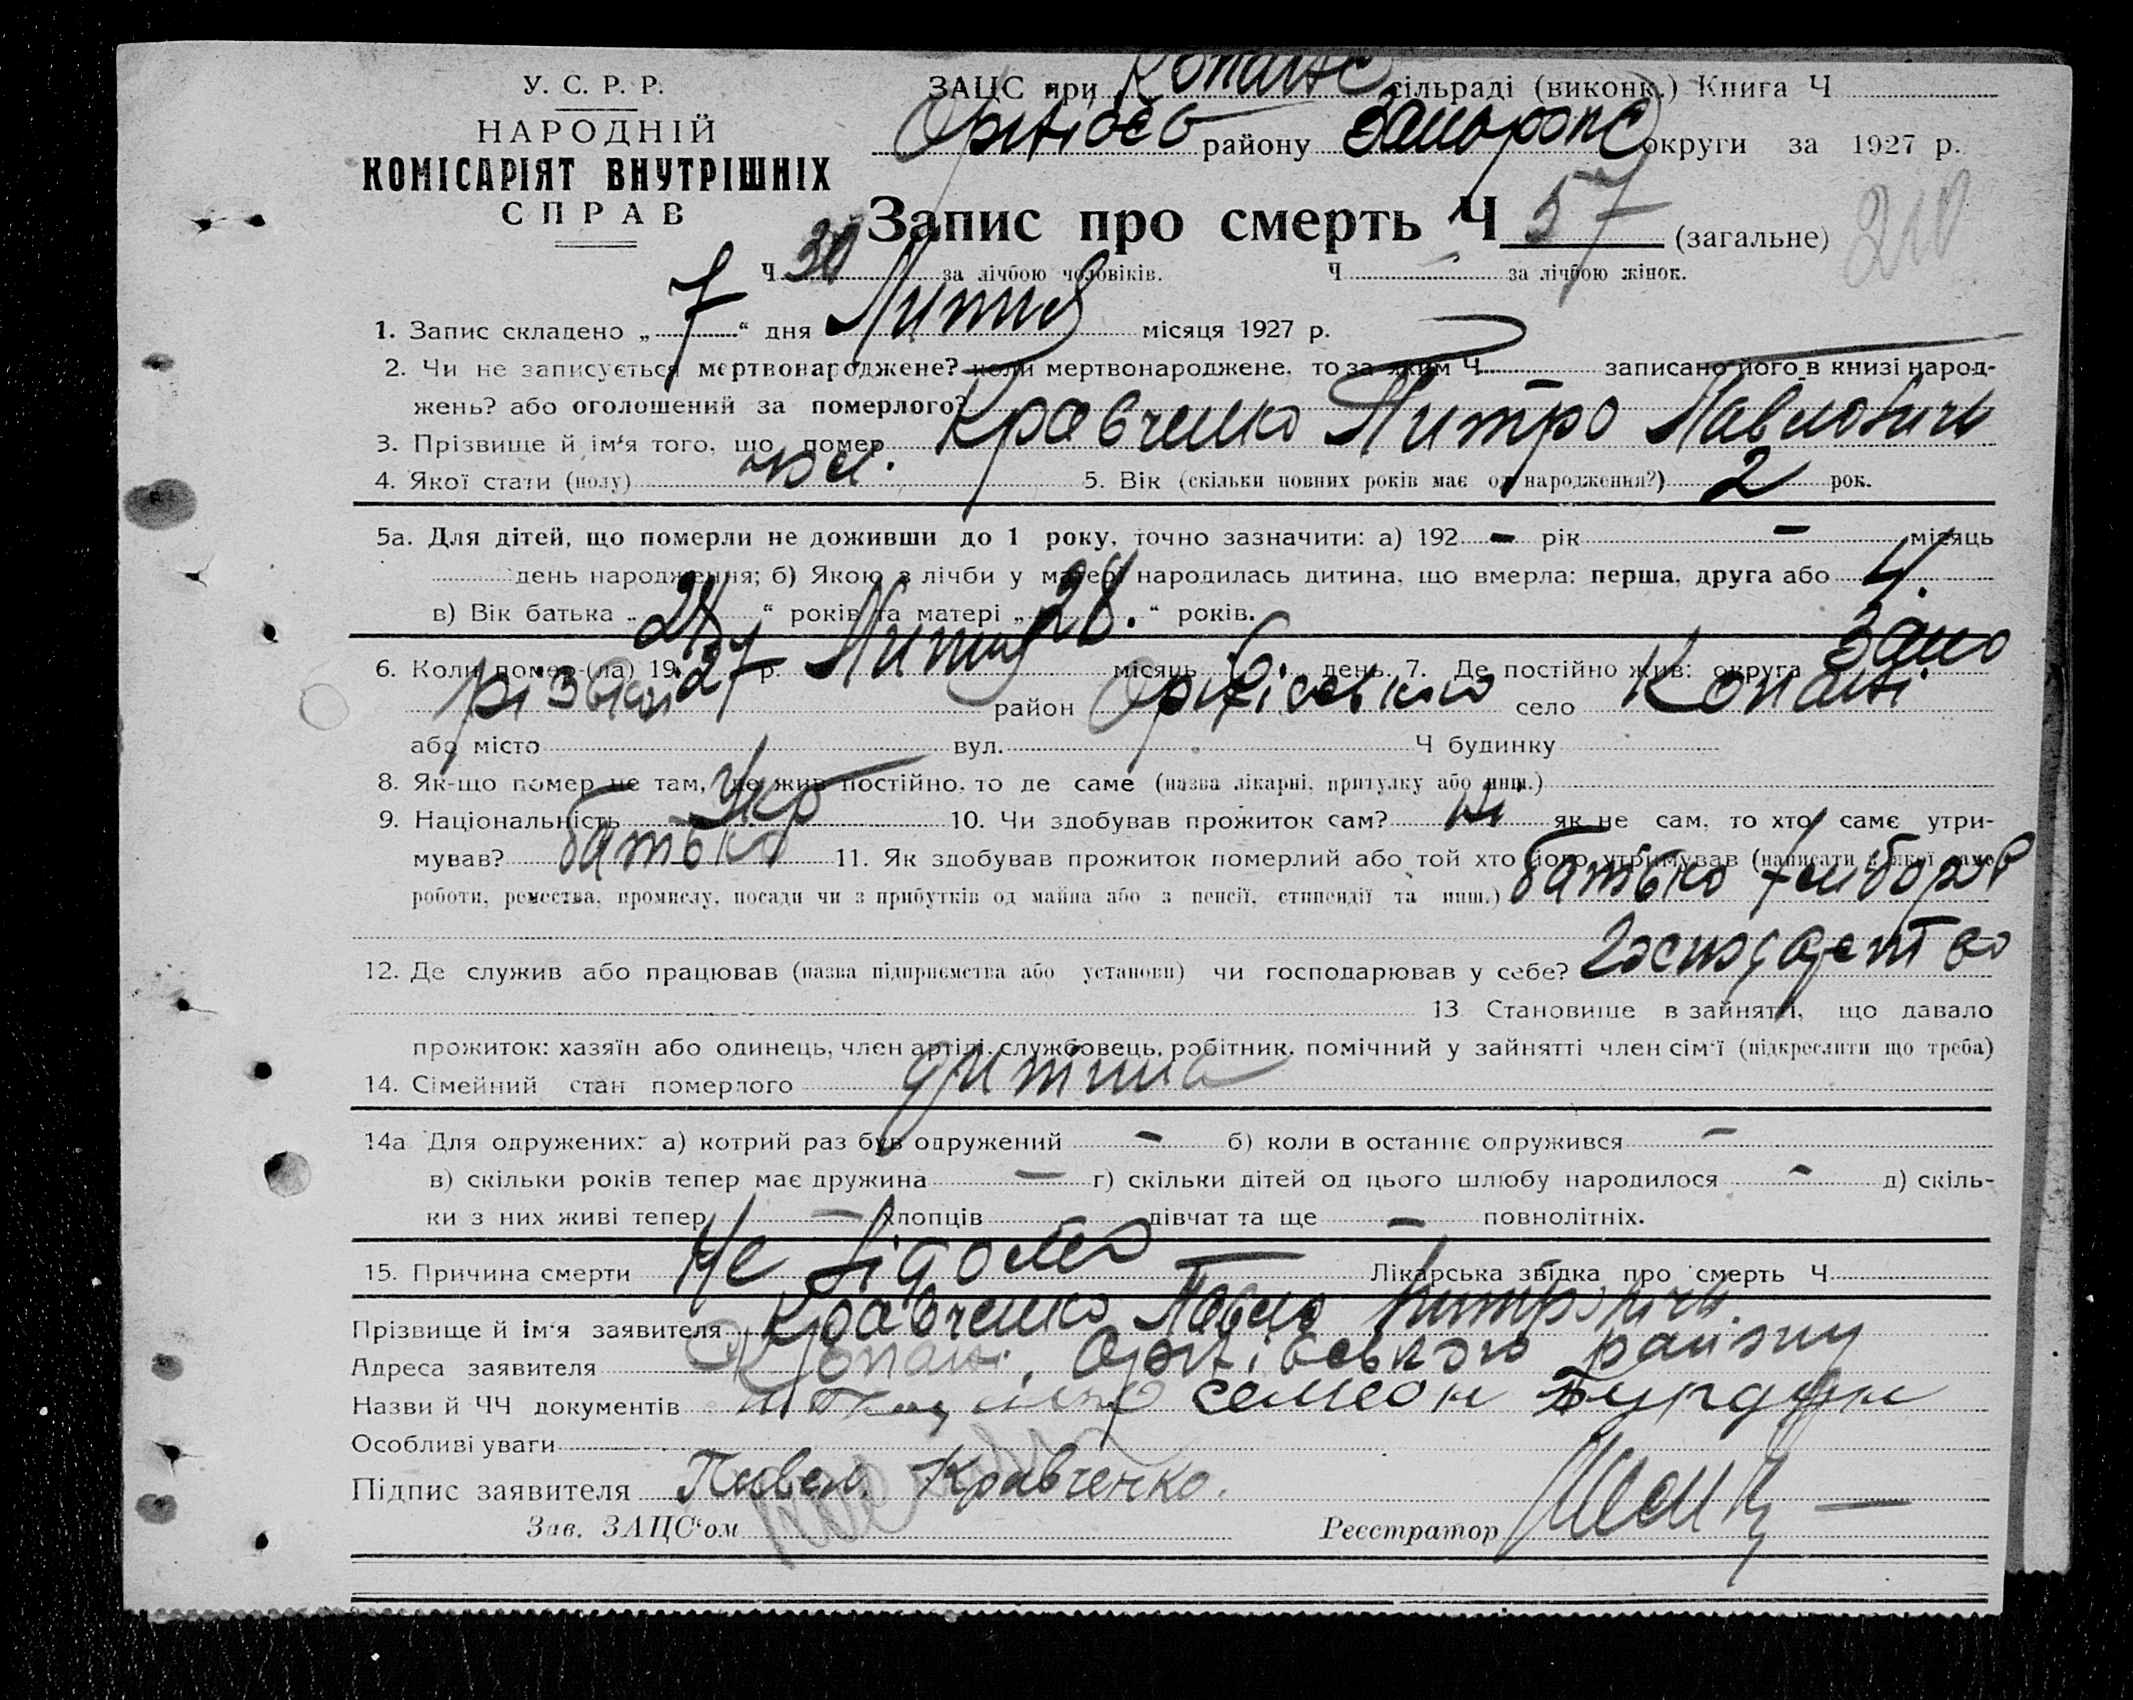 У. С. Р. Р.
НАРОДНІЙ
КОМІСАРІЯТ ВНУТРІШНІХ
СПРАВ
ЗАЦС при Копансь сільраді (виконк.) Книга Ч
Оріхівсь району Запоріжс округи за 1927 р.
Запис про смерть Ч 57 (загальне) 210
Ч 30 за лічбою чоловіків. Ч — за лічбою жінок.
1. Запис складено „ 7 “ дня Липня місяця 1927 р.
2. Чи не записується мертвонароджене? коли мертвонароджене, то за яким Ч — записано його в книзі народ-
жень? або оголошений за померлого?
3. Прізвище й ім'я того, що помер Кравченко Митро Павлович
4. Якої стати (полу) чол. 5. Вік (скільки повних років має од народження?) 2 рок.
5а. Для дітей, що померли не доживши до 1 року, точно зазначити: а) 192 – рік – місяць
день народження; б) Якою з лічби у матері народилась дитина, що вмерла: перша, друга або 4.
в) Вік батька „ “ років та матері „ 28. “ років.
6. Коли помер-(ла) 1927 р. Липня місяць 6. день. 7. Де постійно жив: округа Запо
район Оріхівсько село Копані
або місто вул. Ч будинку
8. Як-що помер не там, де жив постійно, то де саме (назва лікарні, притулку або инш.)
9. Національність Укр 10. Чи здобував прожиток сам? ні як не сам, то хто саме утри-
мував? батько 11. Як здобував прожиток померлий або той хто його утримував (написати з якої саме
роботи, ремества, промислу, посади чи з прибутків од майна або з пенсії, стипендії та инш.) батько хлібороб
12. Де служив або працював (назва підприємства або установи) чи господарював у себе? Господарство
13 Становище в зайнятті, що давало
прожиток: хазяїн або одинець, член артілі, службовець, робітник, помічний у зайнятті член сім'ї (підкреслити що треба)
14. Сімейний стан померлого дитина
14а Для одружених: а) котрий раз був одружений – б) коли в останнє одружився –
в) скільки років тепер має дружина – г) скільки дітей од цього шлюбу народилося – д) скіль-
ки з них живі тепер – хлопців дівчат та ще – повнолітніх.
15. Причина смерти Не відомо Лікарська звідка про смерть Ч
Прізвище й ім'я заявителя Кравченко Павло Митрович
Адреса заявителя Копані, Оріхівського району
Назви й ЧЧ документів Семеон Бурдун
Особливі уваги
Підпис заявителя Павел Кравченко.
Зав. ЗАЦС'ом Реєстратор